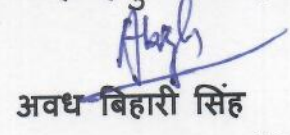 अवध बिहारी सिंह